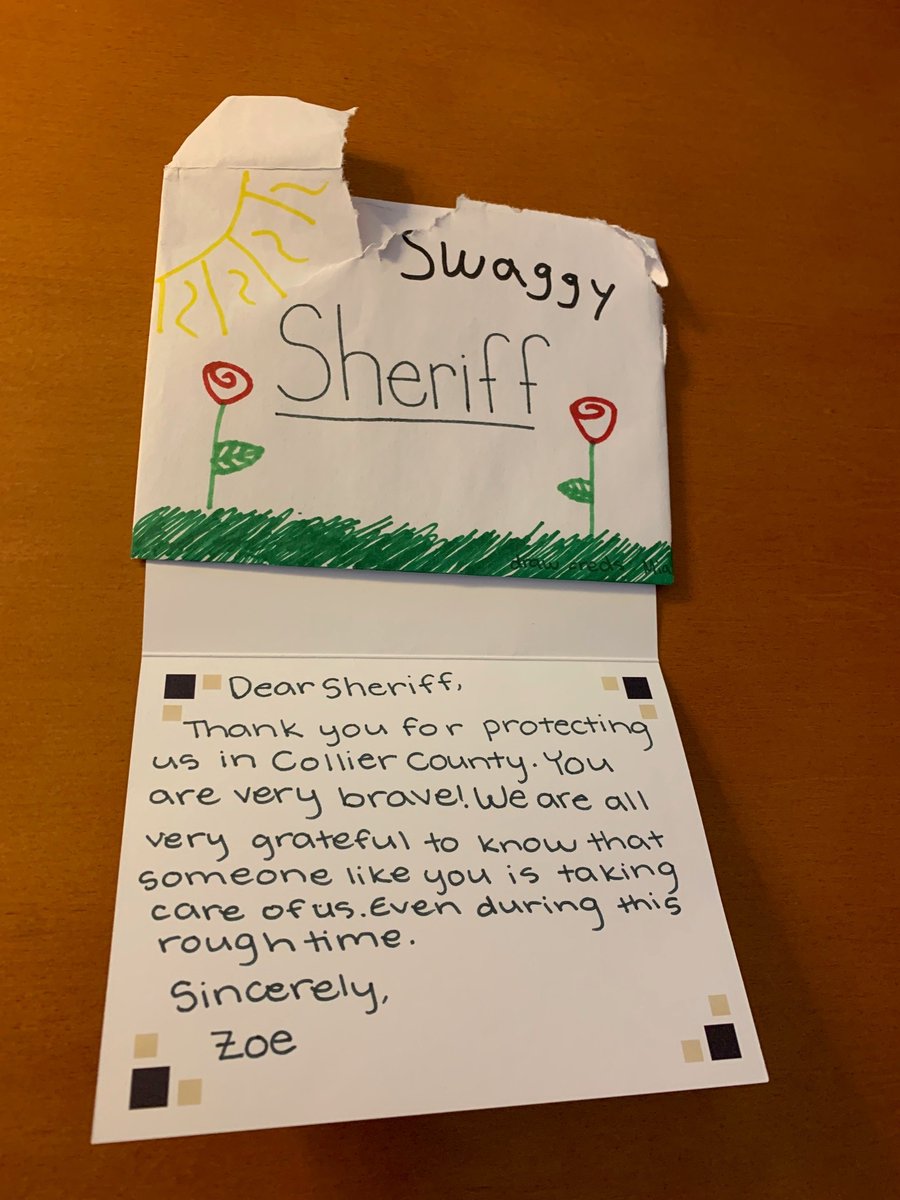 Swaggy
Sheriff
Dear Sheriff,
Thank you for protecting
us in Collier County. You
are very brave! We are all
very grateful to know that
someone like you is taking
care of us. Even during this
rough time.
Sincerely,
Zoe